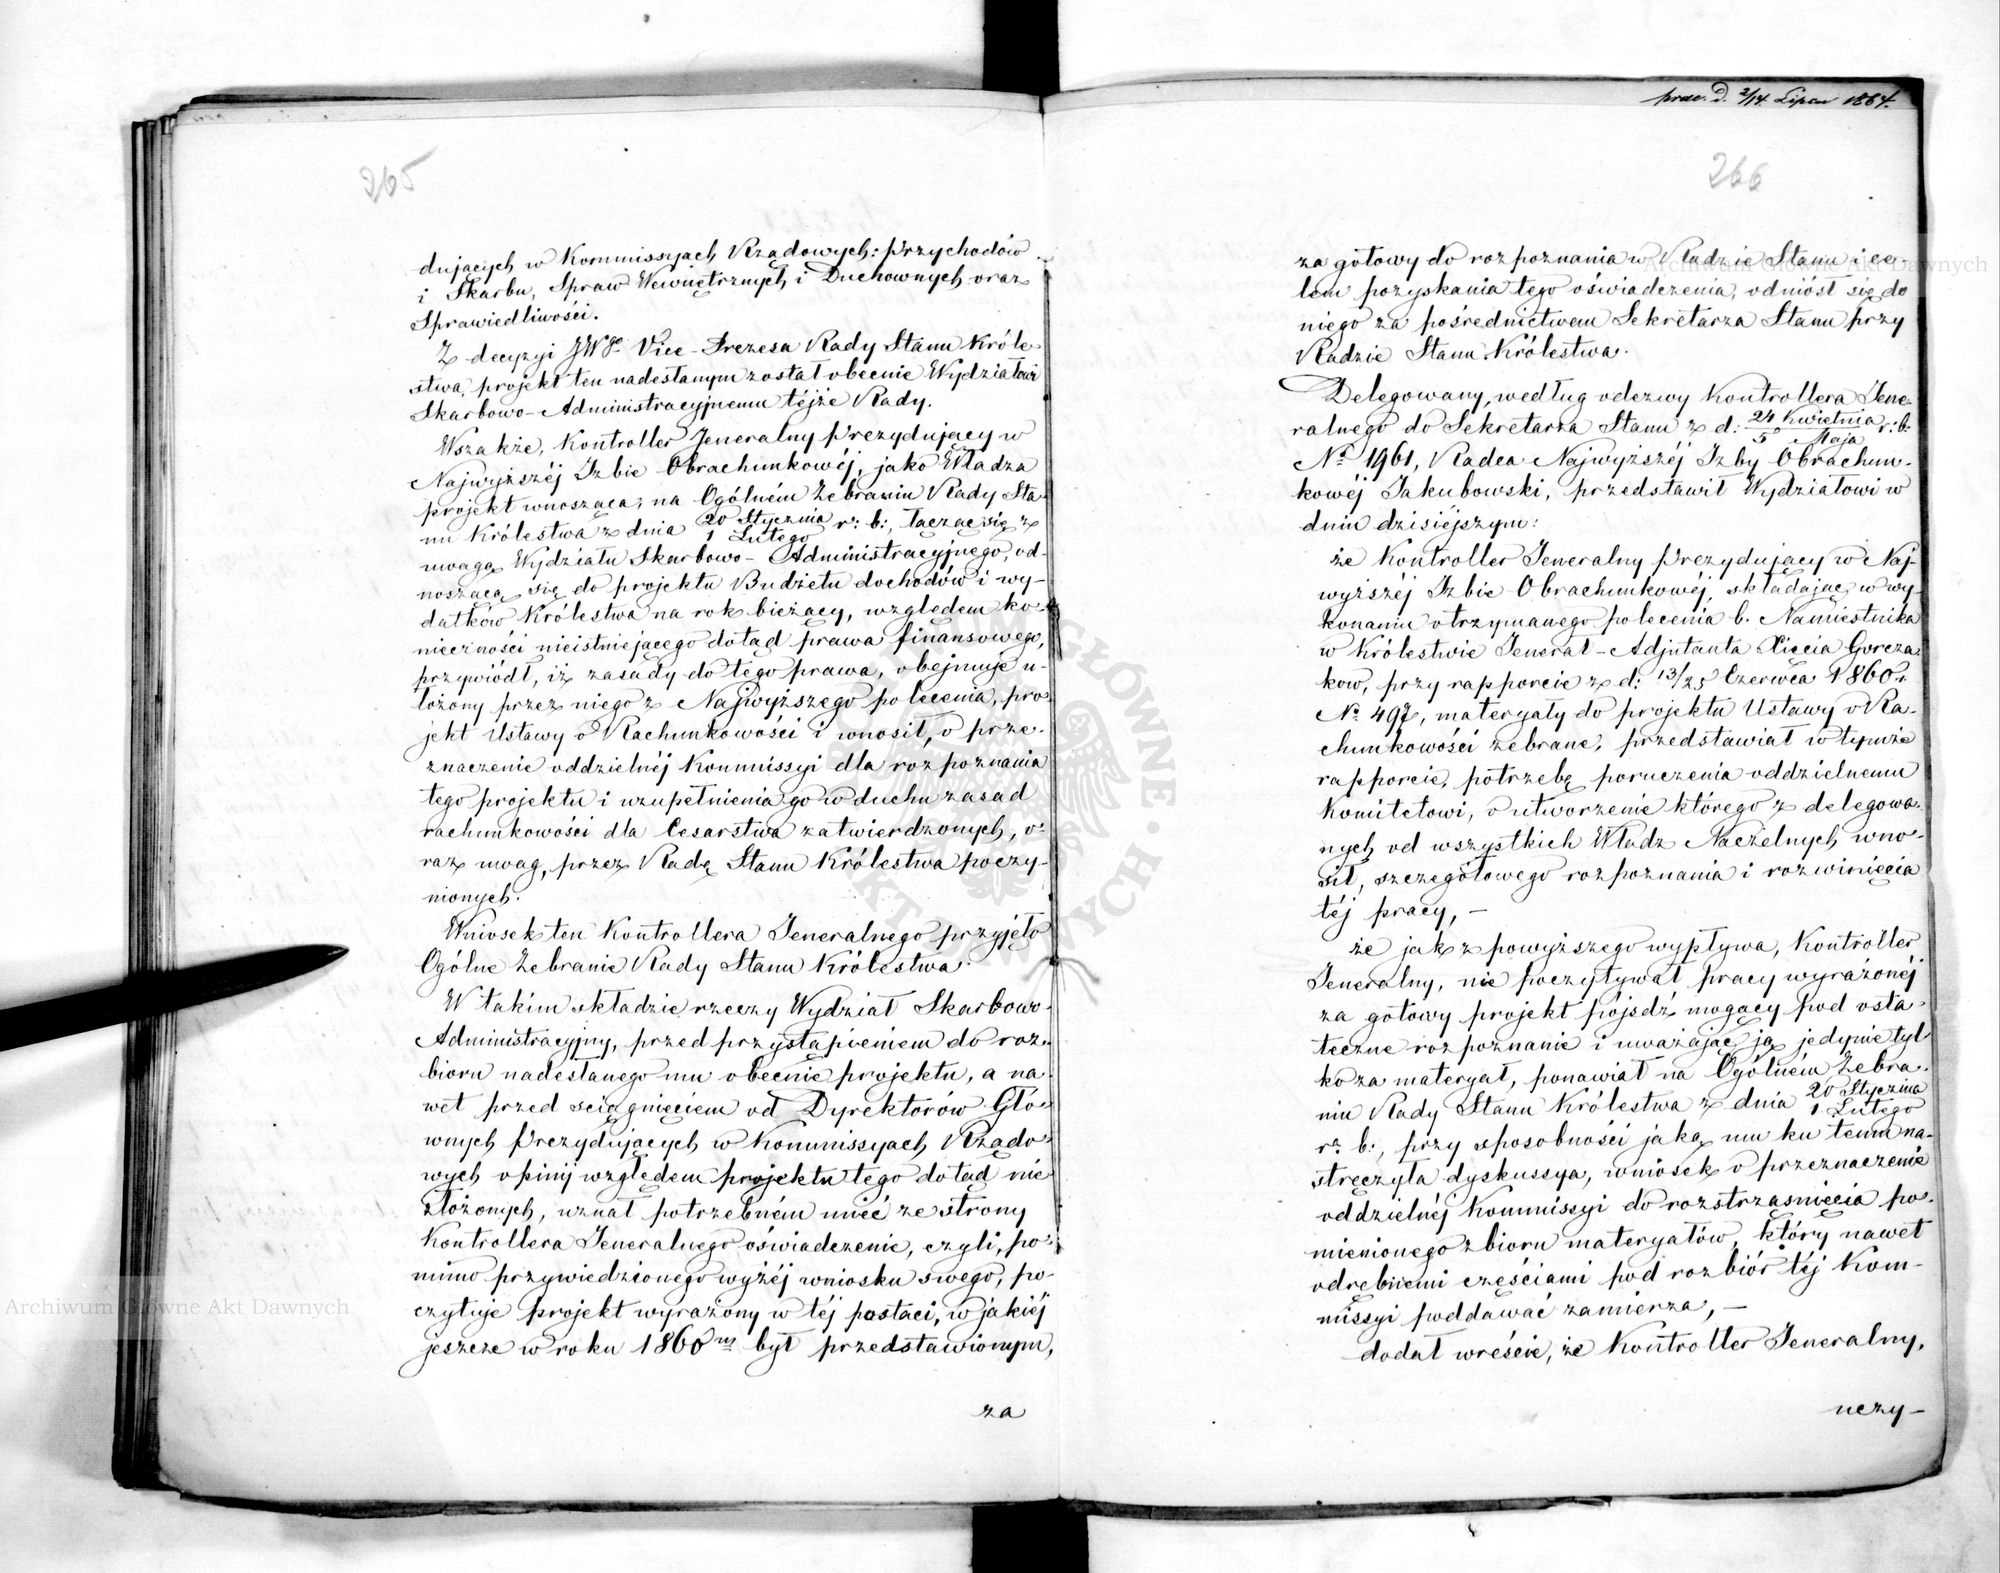 265
dujących w Kommissyach Rządowych: Przychodów
i Skarbu, Spraw Wewnętrznych i Duchownych oraz
Sprawiedliwości.
Z decyzyi JWgo Vice-Prezesa Rady Stanu Króle-
stwa, projekt ten nadesłanym został obecnie Wydziałowi
Skarbowo-Administracyjnemu téjże Rady.
Wszakże, Kontroller Jeneralny Prezydujący w
Najwyższéj Izbie Obrachunkowéj, jako Władza
projekt wnosząca, na Ogólném Zebraniu Rady Sta-
nu Królestwa z dnia 20 Stycznia / 1 Lutego r: b: łącząc się z
uwagą Wydziału Skarbowo-Administracyjnego, od-
noszącą się do projektu Budżetu dochodów i wy-
datków Królestwa na rok bieżący, względem ko-
nieczności nieistniejącego dotąd prawa finansowego,
przywiódł, iż zasady do tego prawa, obejmuje u-
łożony przez niego z Najwyższego polecenia, pro-
jekt Ustawy o Rachunkowości i wnosił, o prze-
znaczenie oddzielnéj Kommissyi dla rozpoznania
tego projektu i uzupełnienia go w duchu zasad
rachunkowości dla Cesarstwa zatwierdzonych, o-
raz uwag, przez Radę Stanu Królestwa poczy-
nionych.
Wniosek ten Kontrollera Jeneralnego przyjęło
Ogólne Zebranie Rady Stanu Królestwa.
W takim składzie rzeczy Wydział Skarbowo-
Administracyjny, przed przystąpieniem do roz-
bioru nadesłanego mu obecnie projektu, a na-
wet przed ściągnięciem od Dyrektorów Głó-
wnych Prezydujących w Kommissyach Rządo-
wych opinij względem projektu tego dotąd nie
złożonych, uznał potrzebném mieć ze strony
Kontrollera Jeneralnego oświadczenie, czyli, po-
mimo przywiedzionego wyżéj wniosku swego, po-
czytuje projekt wyrażony w téj postaci, w jakiéj
jeszcze w roku 1860ym był przedstawionym,
za
prac. d. 2/14 Lipca 1864.
266
za gotowy do rozpoznania w Radzie Stanu i ce-
lem pozyskania tego oświadczenia, odniósł się do
niego za pośrednictwem Sekretarza Stanu przy
Radzie Stanu Królestwa.
Delegowany, według odezwy Kontrollera Jene-
ralnego do Sekretarza Stanu z d: 24 Kwietnia / 5 Maja r: b:
No 1961, Radca Najwyższéj Izby Obrachun-
kowéj Jakubowski, przedstawił Wydziałowi w
dniu dzisiéjszym:
że Kontroller Jeneralny Prezydujący w Naj-
wyższéj Izbie Obrachunkowéj, składając w wy-
konaniu otrzymanego polecenia b. Namiestnika
w Królestwie Jenerał-Adjutanta Xięcia Gorcza-
kow, przy rapporcie z d: 13/25 Czerwca 1860 r.
No 497, materyały do projektu Ustawy o Ra-
chunkowości zebrane, przedstawiał w tymże
rapporcie, potrzebę poruczenia oddzielnemu
Komitetowi, o utworzenie którego z delegowa-
nych od wszystkich Władz Naczelnych wno-
sił, szczegółowego rozpoznania i rozwinięcia
téj pracy, —
że jak z powyższego wypływa, Kontroller
Jeneralny, nie poczytywał pracy wyrażonéj
za gotowy projekt pójsdź mogący pod osta-
teczne rozpoznanie i uważając ją jedynie tyl-
ko za materyał, ponawiał na Ogólném Zebra-
niu Rady Stanu Królestwa z dnia 20 Stycznia / 1 Lutego
r: b:, przy sposobności jaką mu ku temu na-
stręczyła dyskussya, wniosek o przeznaczenie
oddzielnéj Kommissyi do rozstrząśnięcia po-
mienionego zbioru materyałów, który nawet
odrębnemi częściami pod rozbiór téj Kom-
missyi poddawać zamierza, —
dodał wreście, że Kontroller Jeneralny,
uczy-
Archiwum Główne Akt Dawnych
Archiwum Główne Akt Dawnych